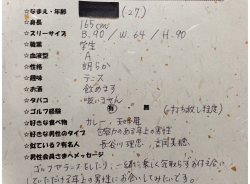 ☆なまえ・年齢 (27)
☆身長 165cm
☆スリーサイズ B.90 / W.64 / H.90
☆職業 学生
☆血液型 A
☆性格 明るか
☆趣味 テニス
☆お酒 飲めます
☆タバコ 吸いません
☆ゴルフ経験 有 (打ちっ放し程度)
☆好きな食べ物 カレー・天津飯
☆好きな男性のタイプ 包容力のある年上の男性
☆似ている?有名人 長谷川理恵、吉岡美穂
☆男性会員さまへメッセージ
ゴルフやテニスをしたり、一緒に楽しく気取らずお付き合い
していただける年上の男性にお会いしてみたいです。